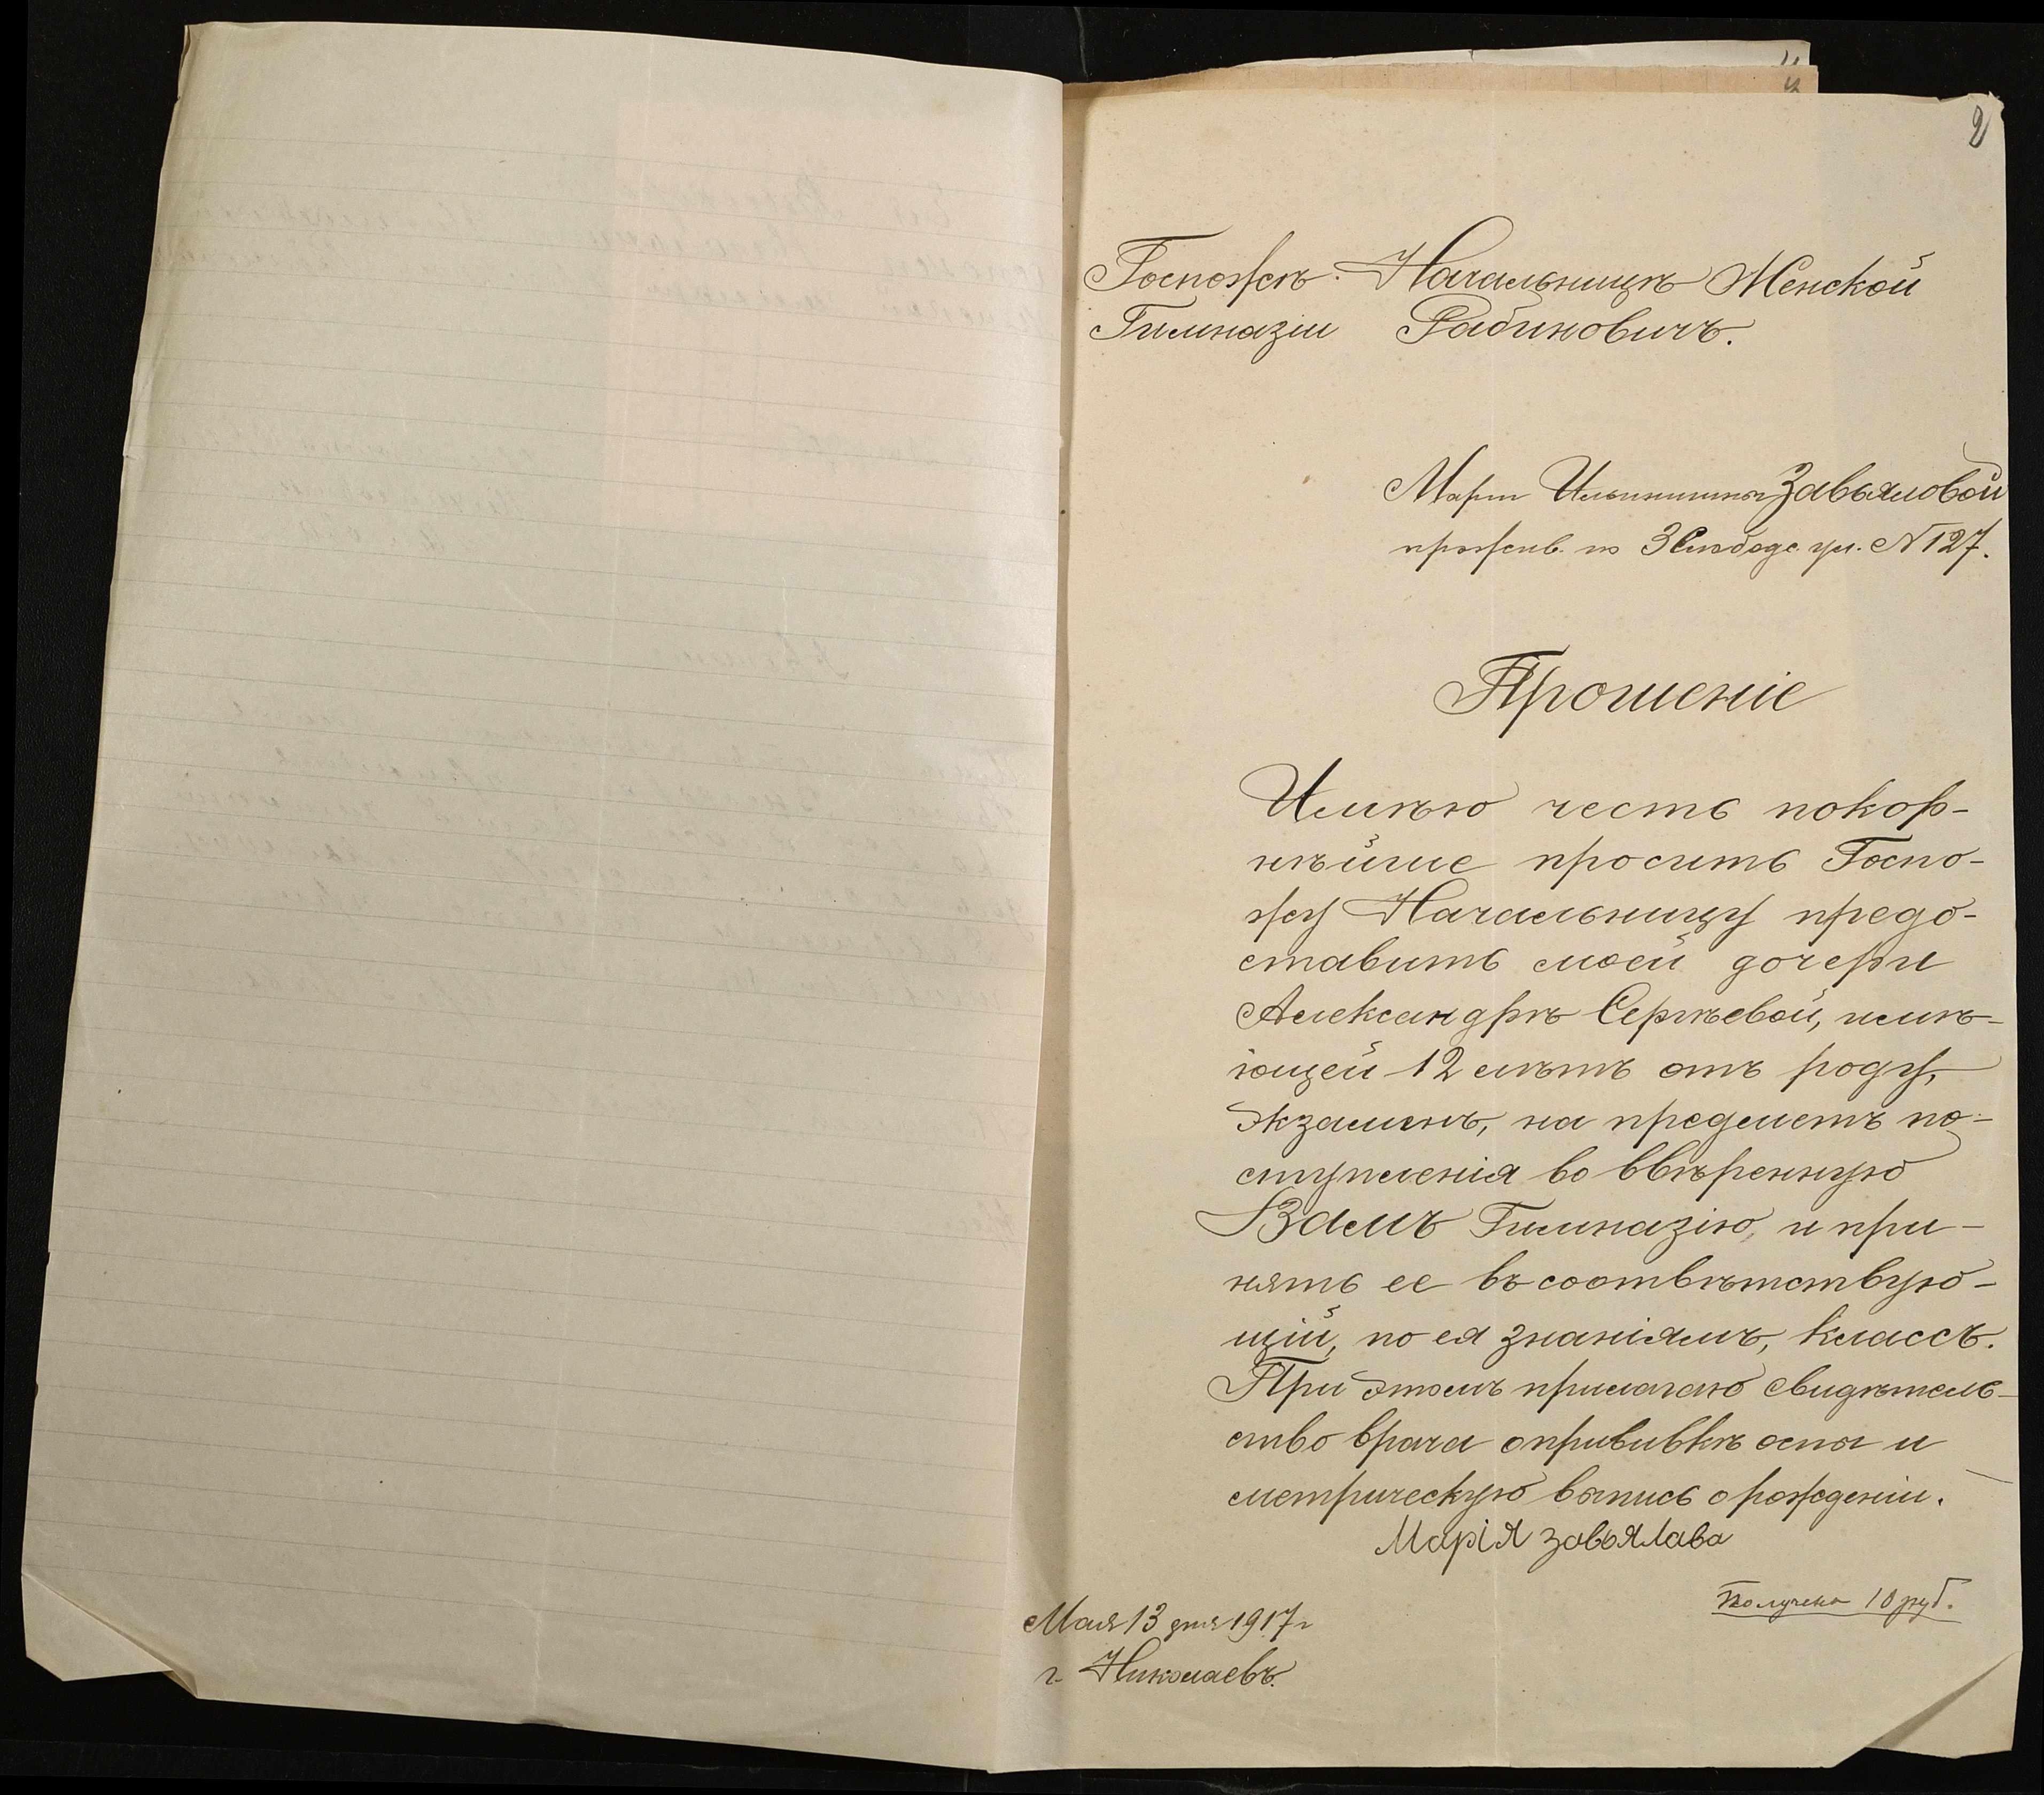 2
Госпожѣ Начальницѣ Женской
Гимназіи Рабиновичъ.
Маріи Ильинишны Завьяловой
прожив. по 3 Слободс. ул. N 127.
Прошеніе
Имѣю честь покор-
нѣйше просить Госпо-
жу Начальницу предо-
ставить моей дочери
Александрѣ Сергѣевой, имѣ-
ющей 12 лѣтъ отъ роду,
экзаменъ, на предметъ по-
ступленія во ввѣренную
Вамъ Гимназію, и при-
нять ее въ соотвѣтствую-
щій, по ея знаніямъ, классъ.
При этомъ прилагаю свидѣтель-
ство врача о прививкѣ оспы и
метрическую выпись о рожденіи.
Марія завьялава
Получено 10 руб.
Мая 13 дня 1917 г
г. Николаевъ.